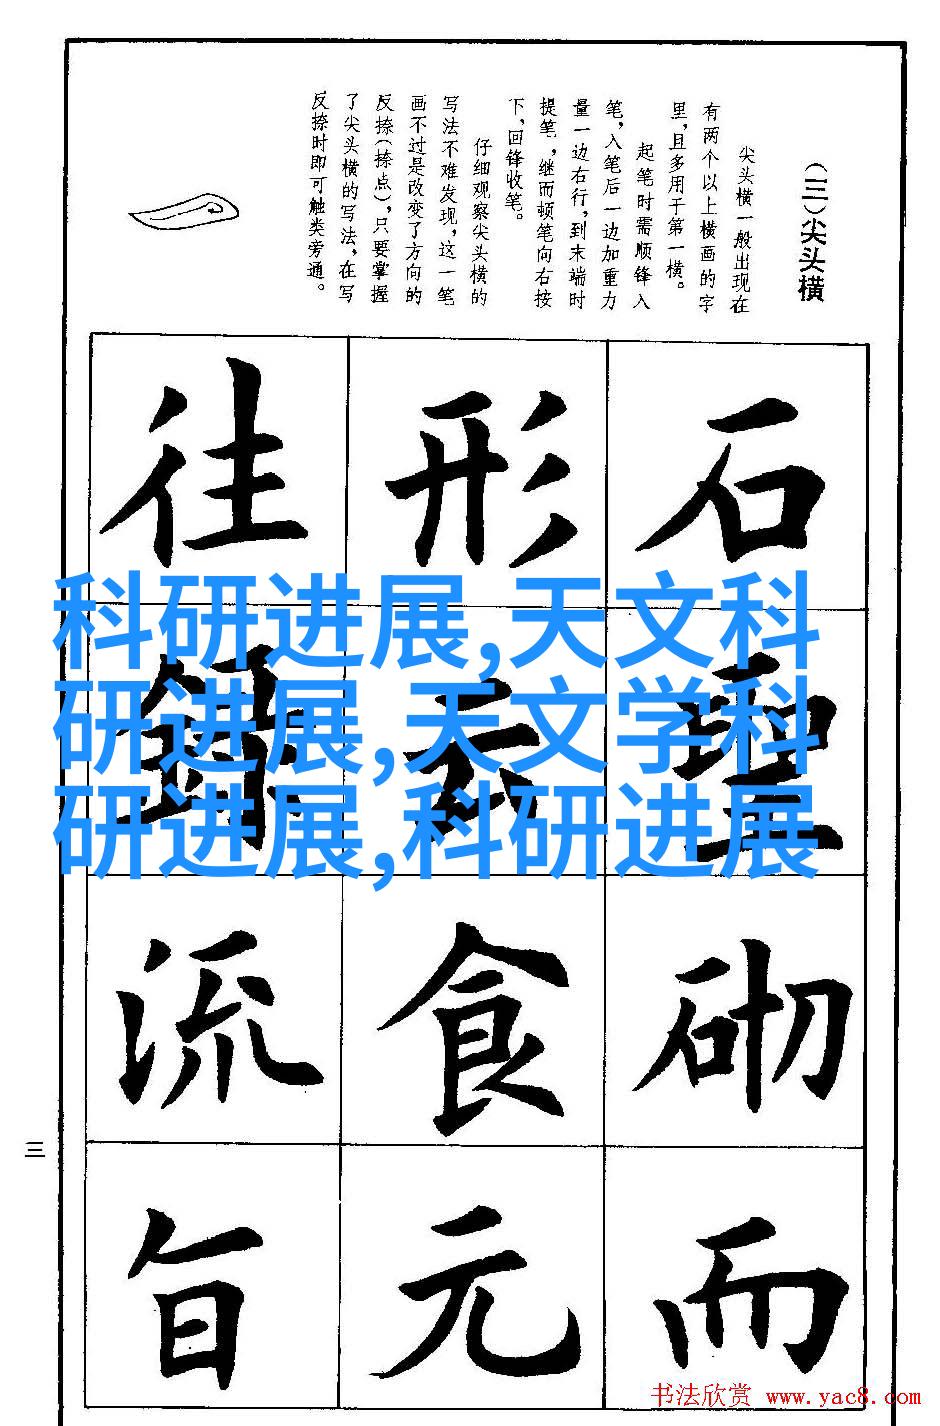 (三)尖头横
尖头横一般出现在
有两个以上横画的字
里,且多用于第一横。
起笔时需顺锋入
笔,入笔后一边加重力
量一边右行,到末端时
提笔,继而顿笔向右按
下,回锋收笔。
仔细观察尖头横的
写法不难发现,这一笔
画不过是改变了方向的
反捺(捺点),只要掌握
了尖头横的写法,在写
反捺时即可触类旁通。
石 形 往
圣
砌 食 流
而 元 旨
科研进展,天文科
研进展,天文学科
研进展,科研进展
三
书法欣赏 www.yac8.com